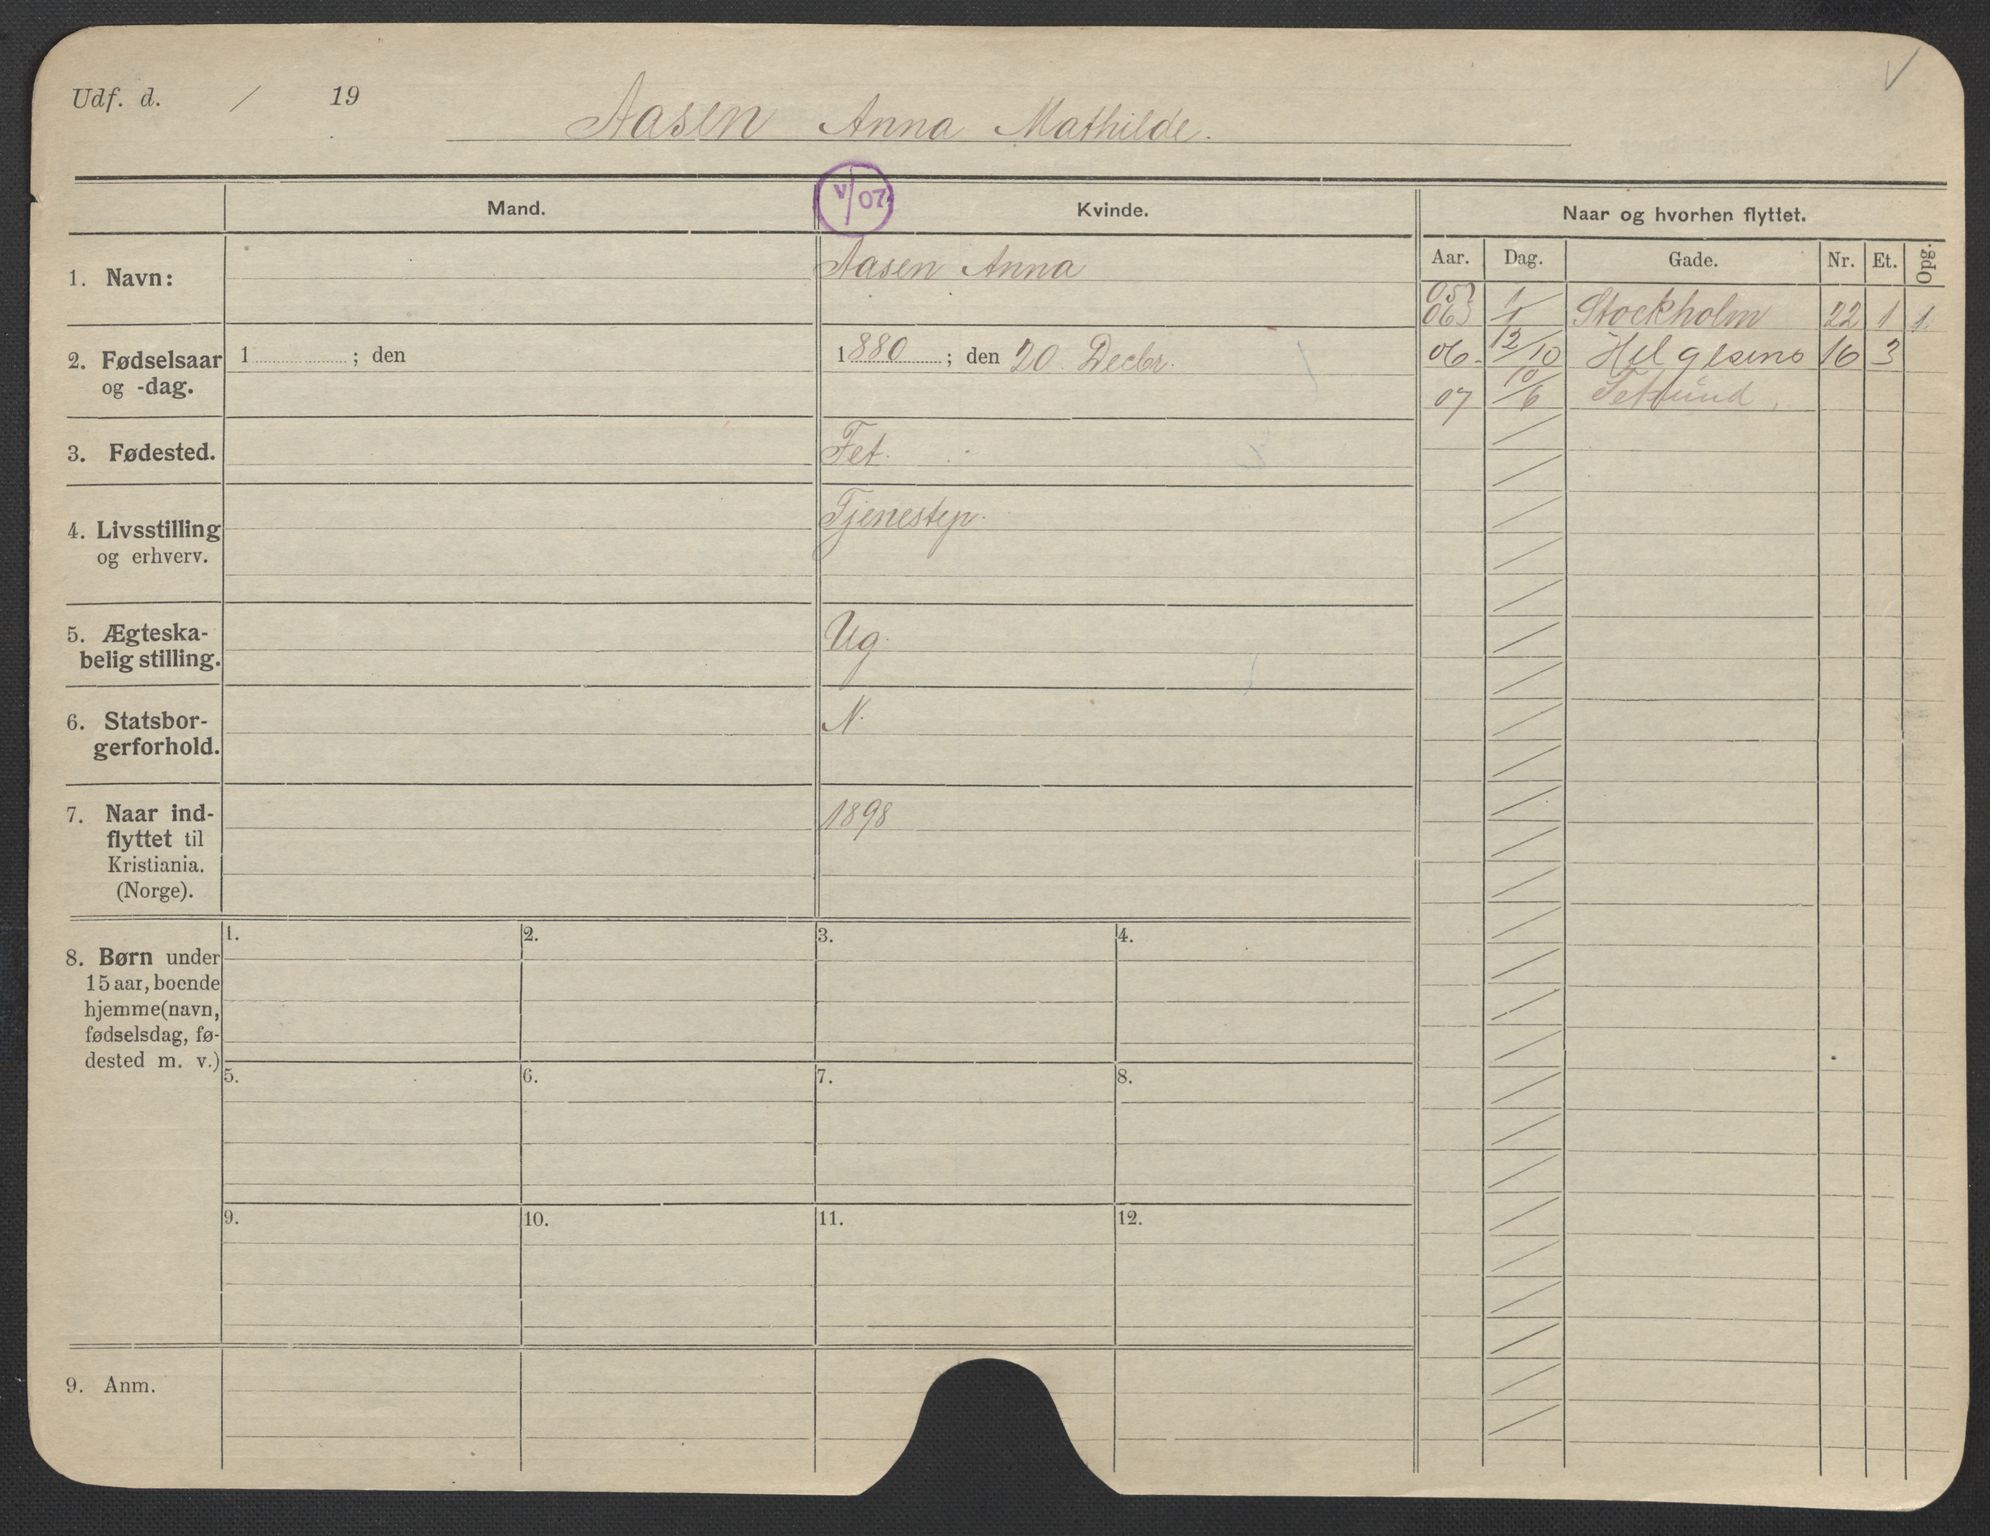 Udf. d. / 19
Aasen Anna Mathilde.
Mand.
V/07
Kvinde.
Naar og hvorhen flyttet.
Aar. Dag. Gade. Nr. Et. Opg.
1. Navn:
Aasen Anna
05
06 1/1 Stockholm 22 1 1.
06 12/10 Helgesens 16 3
07 10/6 Fetsund
2. Fødselsaar
og -dag.
1 ; den
1880 ; den 20 Decbr.
3. Fødested.
Fet.
4. Livsstilling
og erhverv.
Tjenestep.
5. Ægteska-
belig stilling.
Ug.
6. Statsbor-
gerforhold.
N.
7. Naar ind-
flyttet til
Kristiania.
(Norge).
1898
8. Børn under
15 aar, boende
hjemme (navn,
fødselsdag, fø-
dested m. v.)
1. 2. 3. 4.
5. 6. 7. 8.
9. 10. 11. 12.
9. Anm.